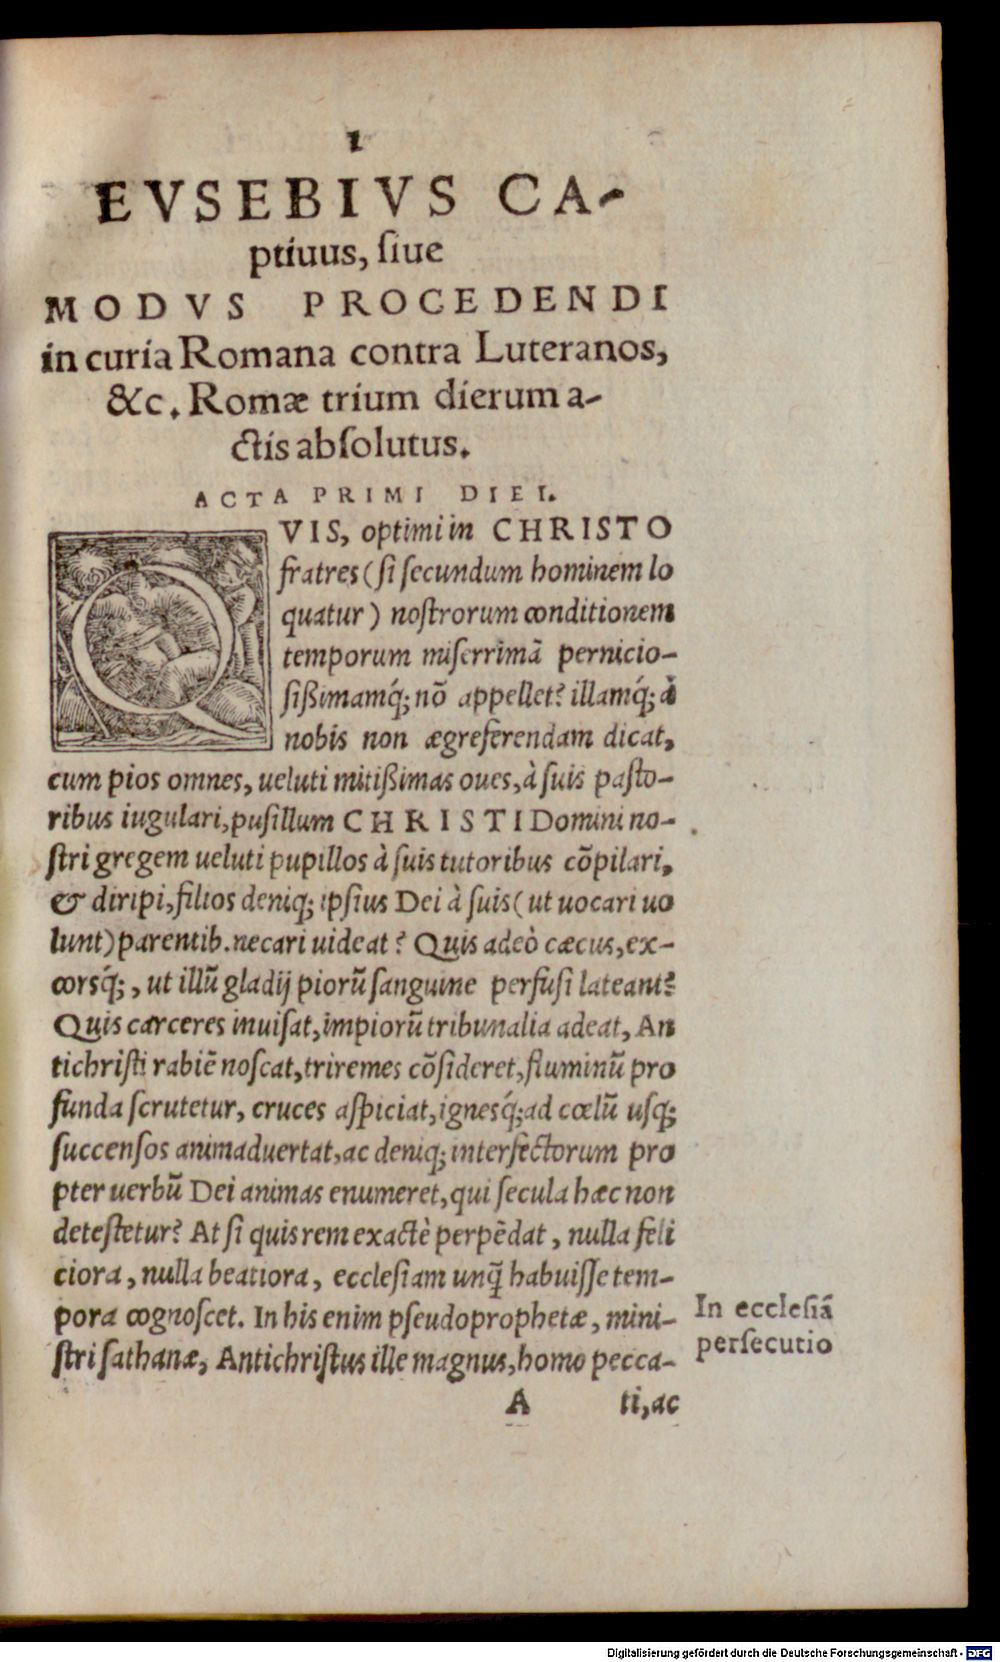 1
EVSEBIVS CA-
ptiuus, ſiue
MODVS PROCEDENDI
in curia Romana contra Luteranos,
&c. Romæ trium dierum a-
ctis abſolutus.
ACTA PRIMI DIEI.
QVIS, optimi in CHRISTO
fratres (ſi ſecundum hominem lo
quatur) noſtrorum conditionem
temporum miſerrimã pernicio-
ſißimamq́; nõ appellet? illamq́; à
nobis non ægreferendam dicat,
cum pios omnes, ueluti mitißimas oues, à ſuis paſto-
ribus iugulari, puſillum CHRISTI Domini no-
ſtri gregem ueluti pupillos à ſuis tutoribus cõpilari,
& diripi, filios deniq; ipſius Dei à ſuis (ut uocari uo
lunt) parentib. necari uideat? Quis adeò cæcus, ex-
corsq́;, ut illũ gladij piorũ ſanguine perfuſi lateant?
Quis carceres inuiſat, impiorũ tribunalia adeat, An
tichriſti rabiẽ noſcat, triremes cõſideret, fluminũ pro
funda ſcrutetur, cruces aſpiciat, ignesq́; ad cœlũ uſq;
ſuccenſos animaduertat, ac deniq; interfectorum pro
pter uerbũ Dei animas enumeret, qui ſecula hæc non
deteſtetur? At ſi quis rem exactè perpẽdat, nulla feli
ciora, nulla beatiora, eccleſiam unq̃ habuiſſe tem-
pora cognoſcet. In his enim pſeudoprophetæ, mini-
ſtri ſathanæ, Antichriſtus ille magnus, homo pecca-
In eccleſiã
perſecutio
A ti, ac
Digitalisierung gefördert durch die Deutsche Forschungsgemeinschaft - DFG